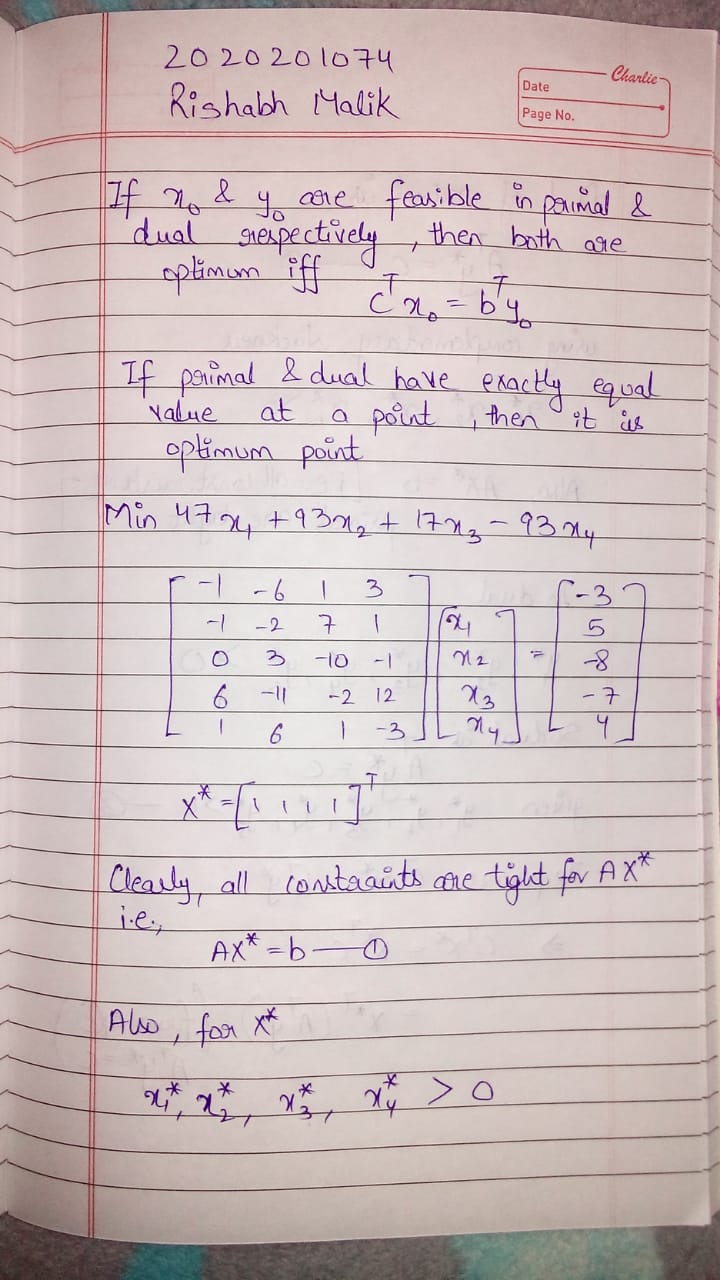 2020201074
Rishabh Malik
Charlie
Date
Page No.
If x₀ & y₀ are feasible in primal &
dual respectively, then both are
optimum iff
Cᵀx₀ = bᵀy₀
If primal & dual have exactly equal
value at a point, then it is
optimum point
Min 47x₁ + 93x₂ + 17x₃ - 93x₄
[-1 -6 1 3
-1 -2 7 1
0 3 -10 -1
6 -11 -2 12
1 6 1 -3] [x₁ x₂ x₃ x₄] = [-3 5 -8 -7 4]
X* = [1 1 1 1]ᵀ
Clearly, all constraints are tight for AX*
i.e.,
AX* = b — ①
Also, for X*
x₁*, x₂*, x₃*, x₄* > 0